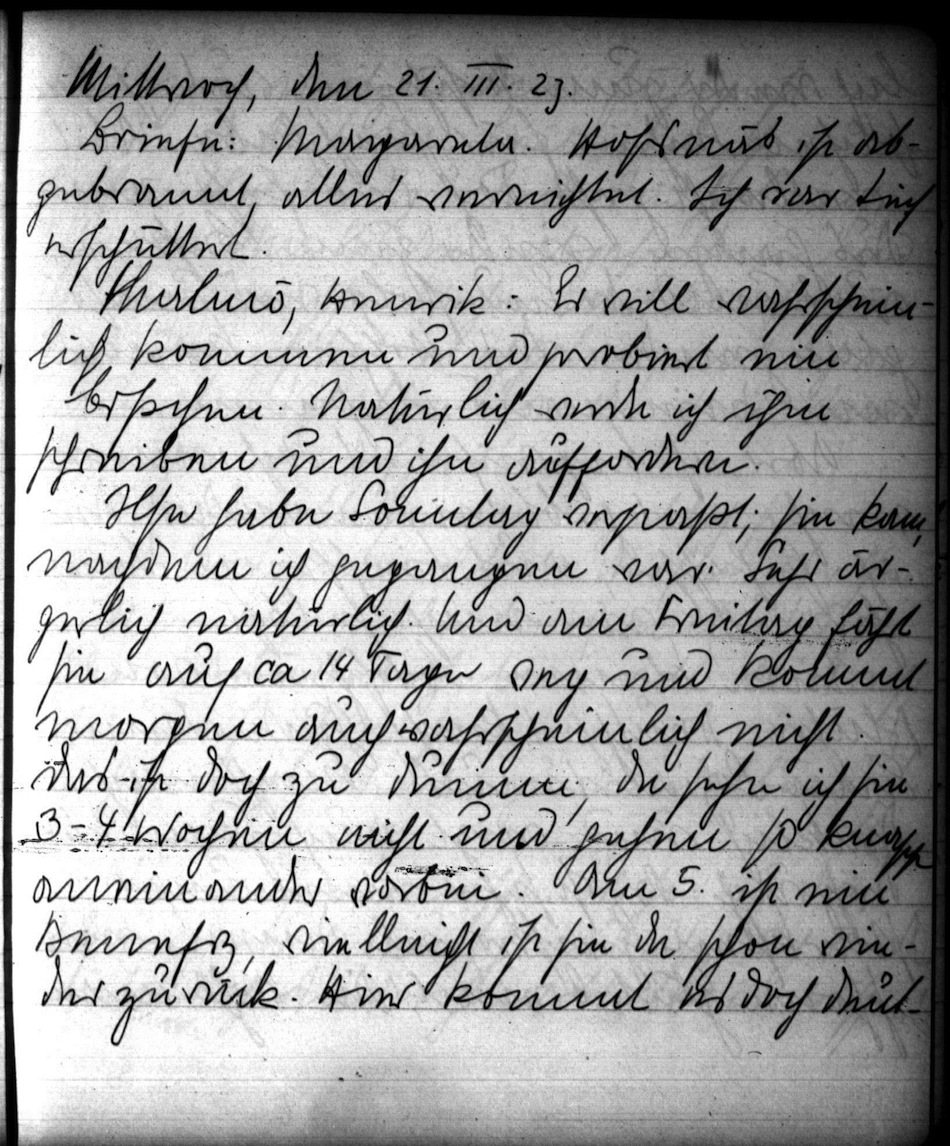 Mittwoch, den 21. III. 23.
Briefe: Margarete. Hofsnäs ist ab-
gebrannt, alles vernichtet. Ich war tief
erschüttert.
Henrik: Er will wahrschein-
lich kommen und probiert ein
Natürlich werde ich ihm
schreiben und ihn auffordern.
Ilse habe Sonntag verpaßt; sie kam,
nachdem ich gegangen war. Sehr är-
gerlich natürlich. Und am Freitag fährt
sie auf ca 14 Tage weg und kommt
morgen auch wahrscheinlich nicht.
das ist doch zu dumm, da sehe ich sie
3-4 Wochen nicht und gehen so knapp
aneinander vorbei. Am 5. ist ein
vielleicht ist sie da schon wie-
der zurück. Hier kommt es doch deut-